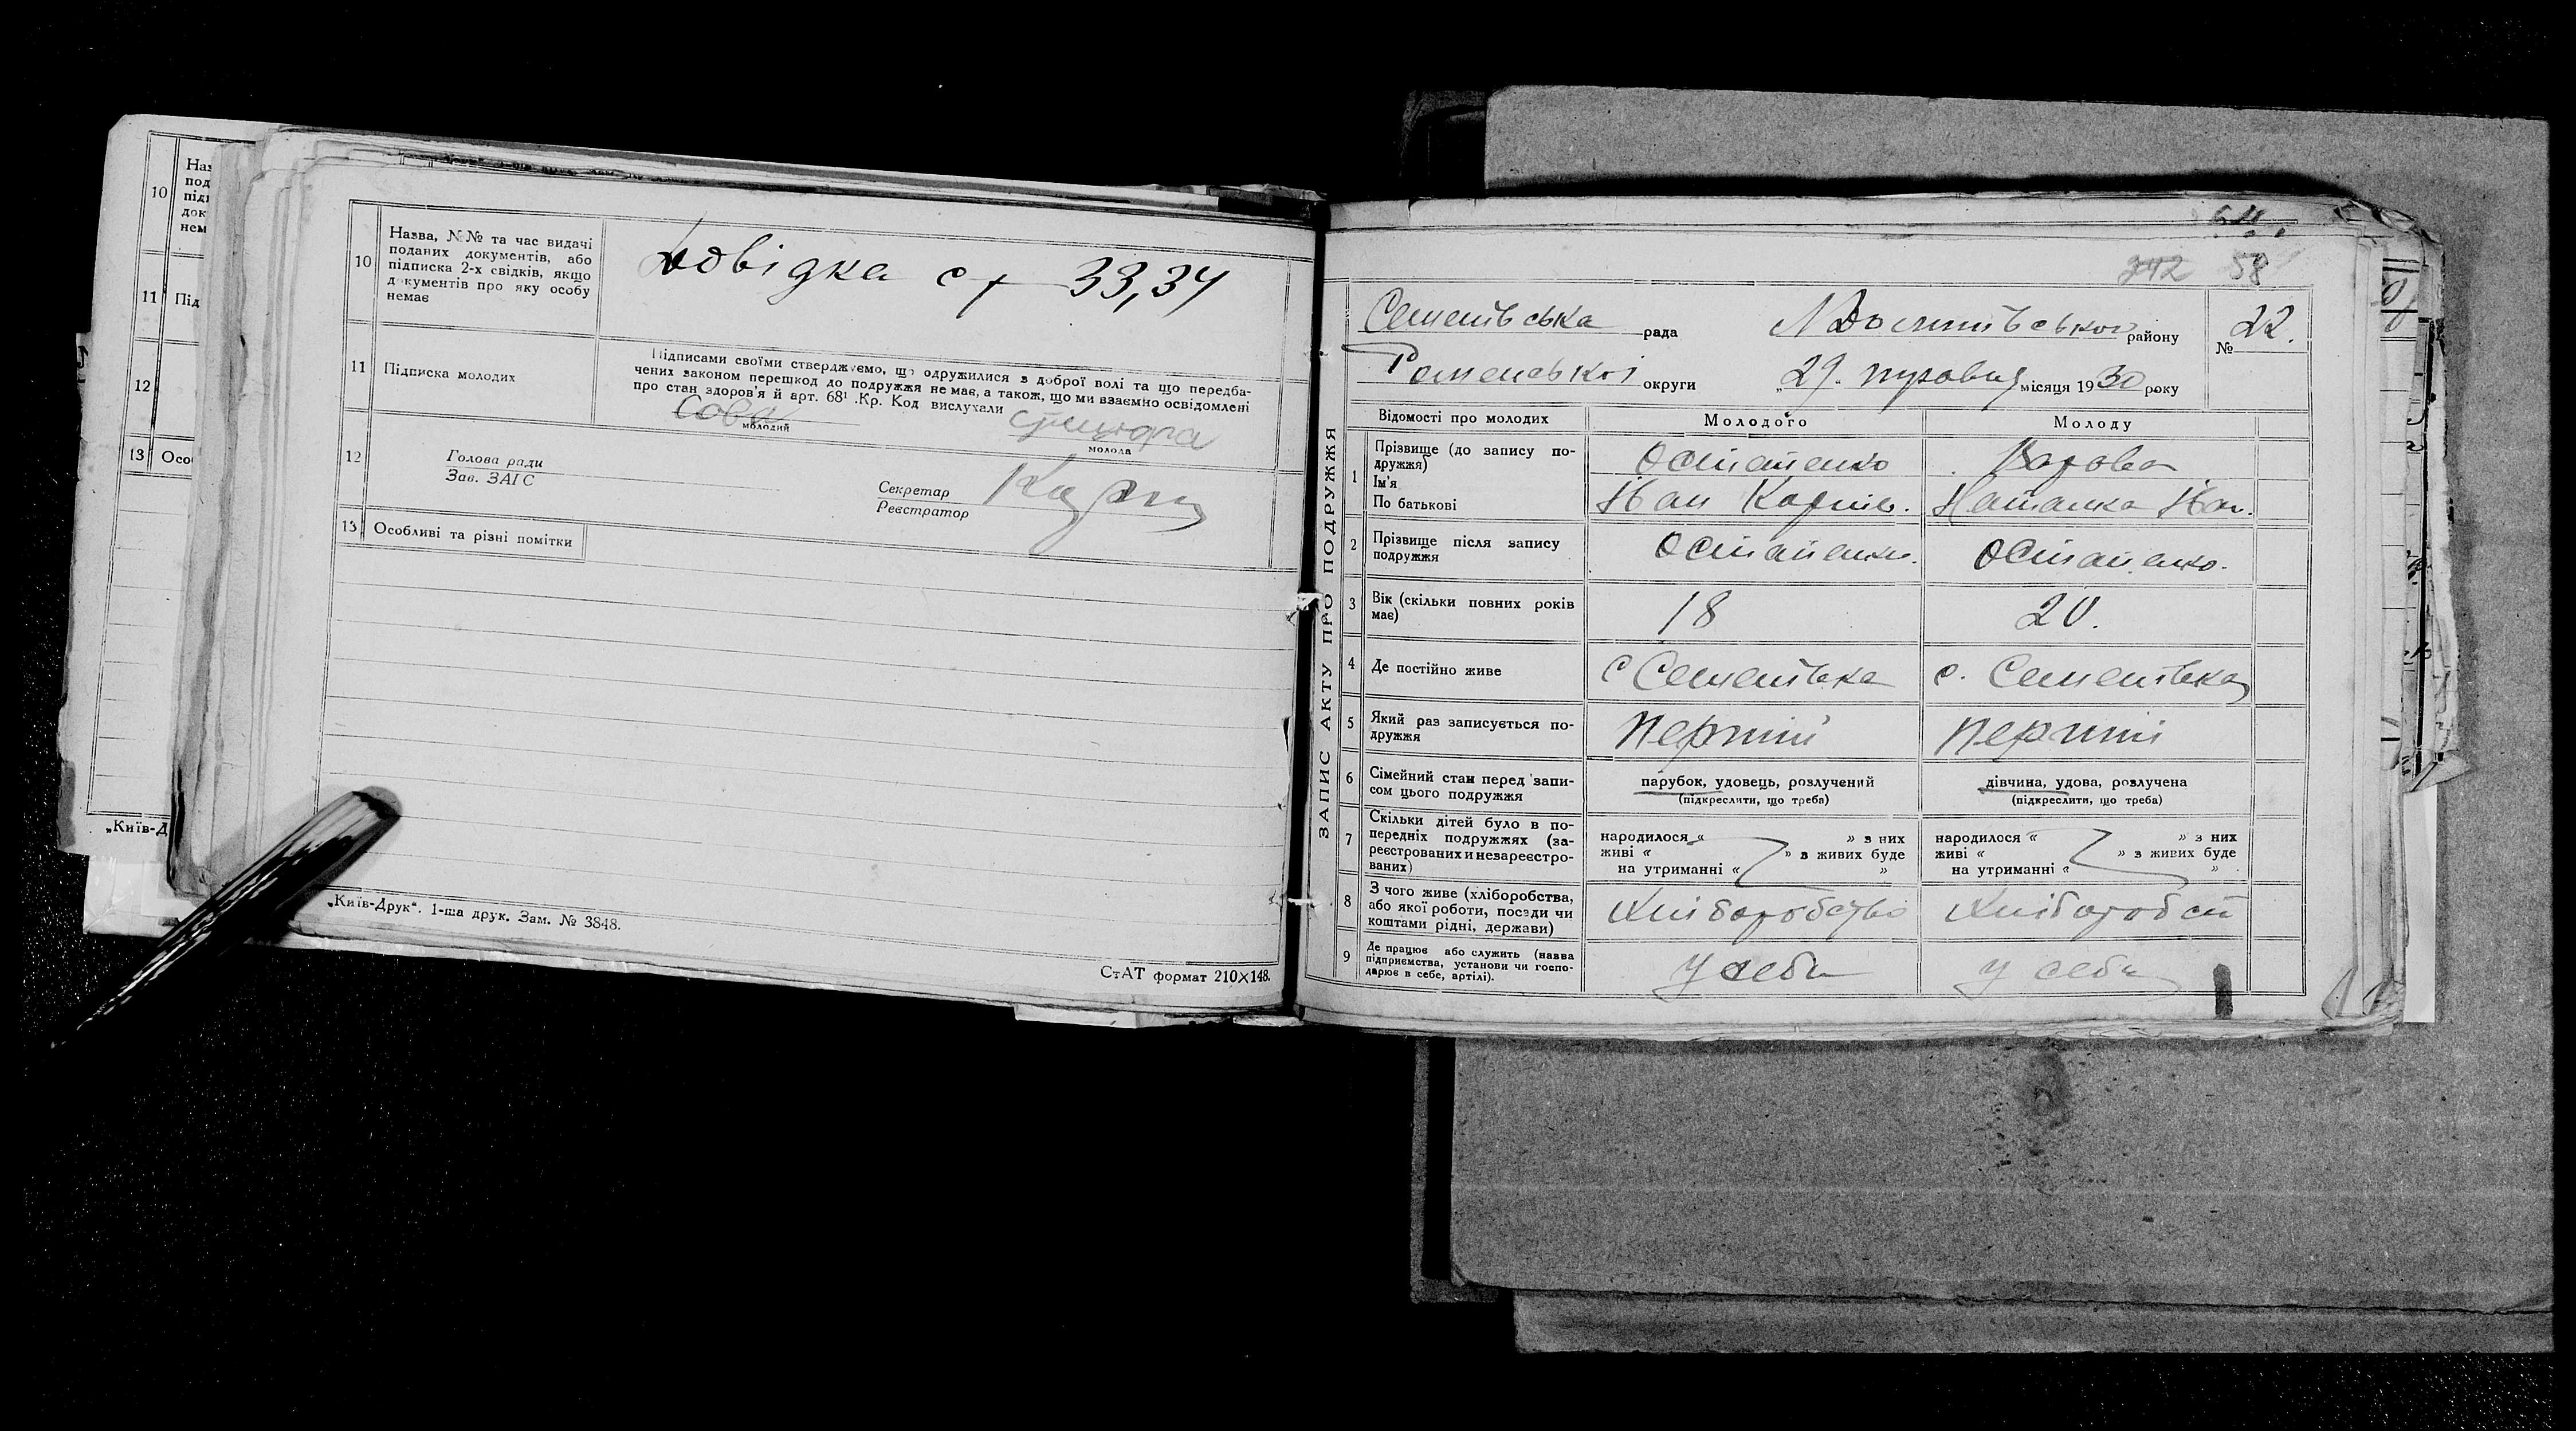 10
Наз
под
підп
док
нем
11
Під
12
13
Осо
„Київ-Д
10
Назва, №№ та час видачі
поданих документів, або
підписка 2-х свідків, якщо
документів про яку особу
немає
Довідка ст 33,34
11
Підписка молодих
Підписами своїми стверджуємо, що одружилися з доброї волі та що передба-
чених законом перешкод до подружжя немає, а також, що ми взаємно освідомлені
про стан здоров'я й арт. 68¹ .Кр. Код вислухали
Сова
молодий
молода
12
Голова ради
Зав. ЗАГС
Секретар
Реєстратор
13
Особливі та різні помітки
„Київ-Друк“. 1-ша друк. Зам. № 3848.
СтАТ формат 210×148.
ЗАПИС АКТУ ПРО ПОДРУЖЖЯ
342 58
Семенівська рада
району
№ 22.
Роменської округи
„29. місяця 1930 року
Відомості про молодих
Молодого
Молоду
1
Прізвище (до запису по-
дружжя)
Ім'я
По батькові
Остапенко
Іван Корнів.
Наталка Іван.
2
Прізвище після запису
подружжя
Остапенко.
Остапенко.
3
Вік (скільки повних років
має)
18
20.
4
Де постійно живе
с Семенівка
с. Семенівка
5
Який раз записується по-
дружжя
перший
перший
6
Сімейний стан перед запи-
сом цього подружжя
парубок, удовець, розлучений
(підкреслити, що треба)
дівчина, удова, розлучена
(підкреслити, що треба)
7
Скільки дітей було в по-
передніх подружжях (за-
реєстрованих и незареєстро-
ваних)
народилося « » з них
живі « » з живих буде
на утриманні « »
народилося « » з них
живі « » з живих буде
на утриманні « »
8
З чого живе (хліборобства,
або якої роботи, посади чи
коштами рідні, держави)
Хліборобство
Хлібороб ст
9
Де працює або служить (назва
підприємства, установи чи госпо-
дарює в себе, артілі).
у себе
у себе